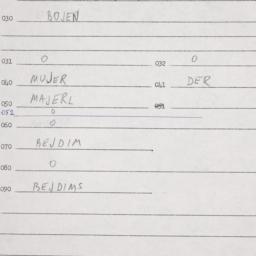 030 BOJEN
031 O 032 O
040 MUJER 041 DER
050 MAJERL 051
052 O
060 O
070 BEJDIM
080 O
090 BEJDIMS